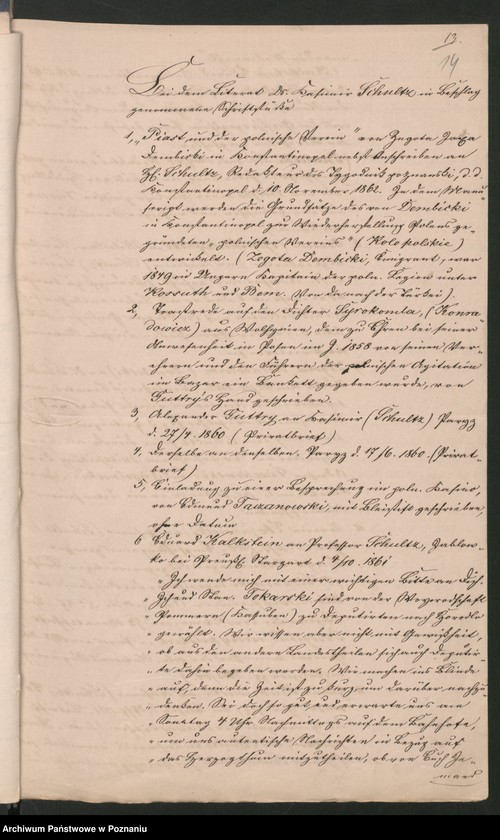 13.
14
Bei dem Literat Dr. Kasimir Schultz in Beschlag
genommene Schriftstücke
1, „Piast und der polnische Verein" von Zagota Jaxa
Dembicki in Konstantinopel nebst Anschreiben an
Schultz, Redakteur des Tygodnik poznanski, d. d.
Konstantinopel d. 10. November 1862. In dem Manu-
script werden die Grundsätze des von Dembicki
in Konstantinopel zur Wiederherstellung Polens ge-
gründeten „polnischen Vereins" (Kolo polskie)
entwickelt. (Zogota Dembicki, Emigrant, war
1849 in Ungarn Kapitain der poln. Legion unter
Kossuth und Bem. Von da nach der Türkei).
2, Toastrede auf den Dichter Syrokomla, (Konra-
dowicz) aus Wolhynien, dem zu Ehren bei seiner
Anwesenheit in Posen im J. 1858 von seinen Ver-
ehrern und den Führern der polnischen Agitation
im Bazar ein Bankett gegeben wurde, von
Guttry's Hand geschrieben.
3, Alexander Guttry an Kasimir (Schultz) Paryz
d. 27/4. 1860 (Privatbrief)
4. Derselbe an denselben. Paryz d. 17/6. 1860. (Privat-
brief)
5, Einladung zu einer Besprechung im poln. Kasino,
von Edmund Taczanowski, mit Bleistift geschrieben,
ohne Datum
6 Eduard Kalkstein an Professor Schultz, Jablow-
ko bei Preuß. Stargart d. 4/10. 1861
„Ich wende mich mit einer wichtigen Bitte an Dich.
„Ich und Stan. Tokarski sind von der Woywodschaft
„Pommern (Kassuben) zu Deputirten nach Horodlo
„gewählt. Wir wissen aber nicht mit Gewißheit,
„ob aus den andern Landestheilen sich auch Deputir-
„te dahin begeben werden. Wir machen uns blinde
„auf, denn die Zeit ist zu kurz, um darüber nachzu-
„denken. Sei doch so gut und erwarte uns am
„Sonntag 4 Uhr Nachmittags auf dem Bahnhofe,
„um uns autentische Nachrichten in Bezug auf
„das Herzogthum mitzutheilen, ob von Euch Je-
mand
Archiwum Państwowe w Poznaniu